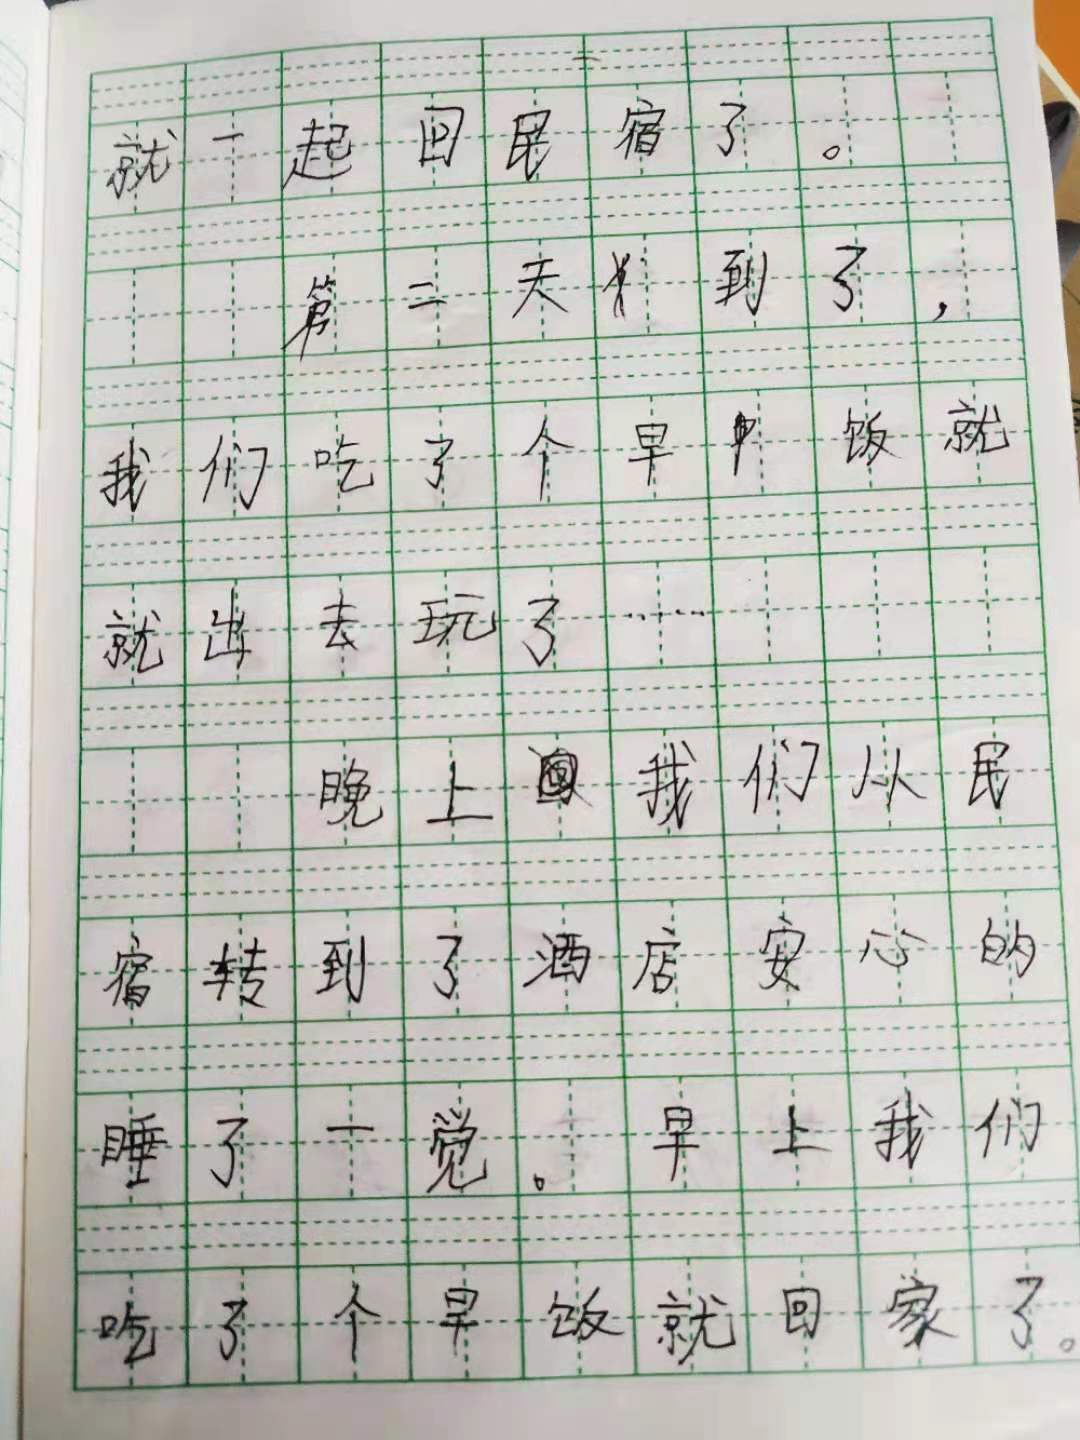 就一起回民宿了。
第二天到了，
我们吃了个早饭就
就出去玩了……
晚上我们从民
宿转到了酒店安心的
睡了一觉。早上我们
吃了个早饭就回家了。